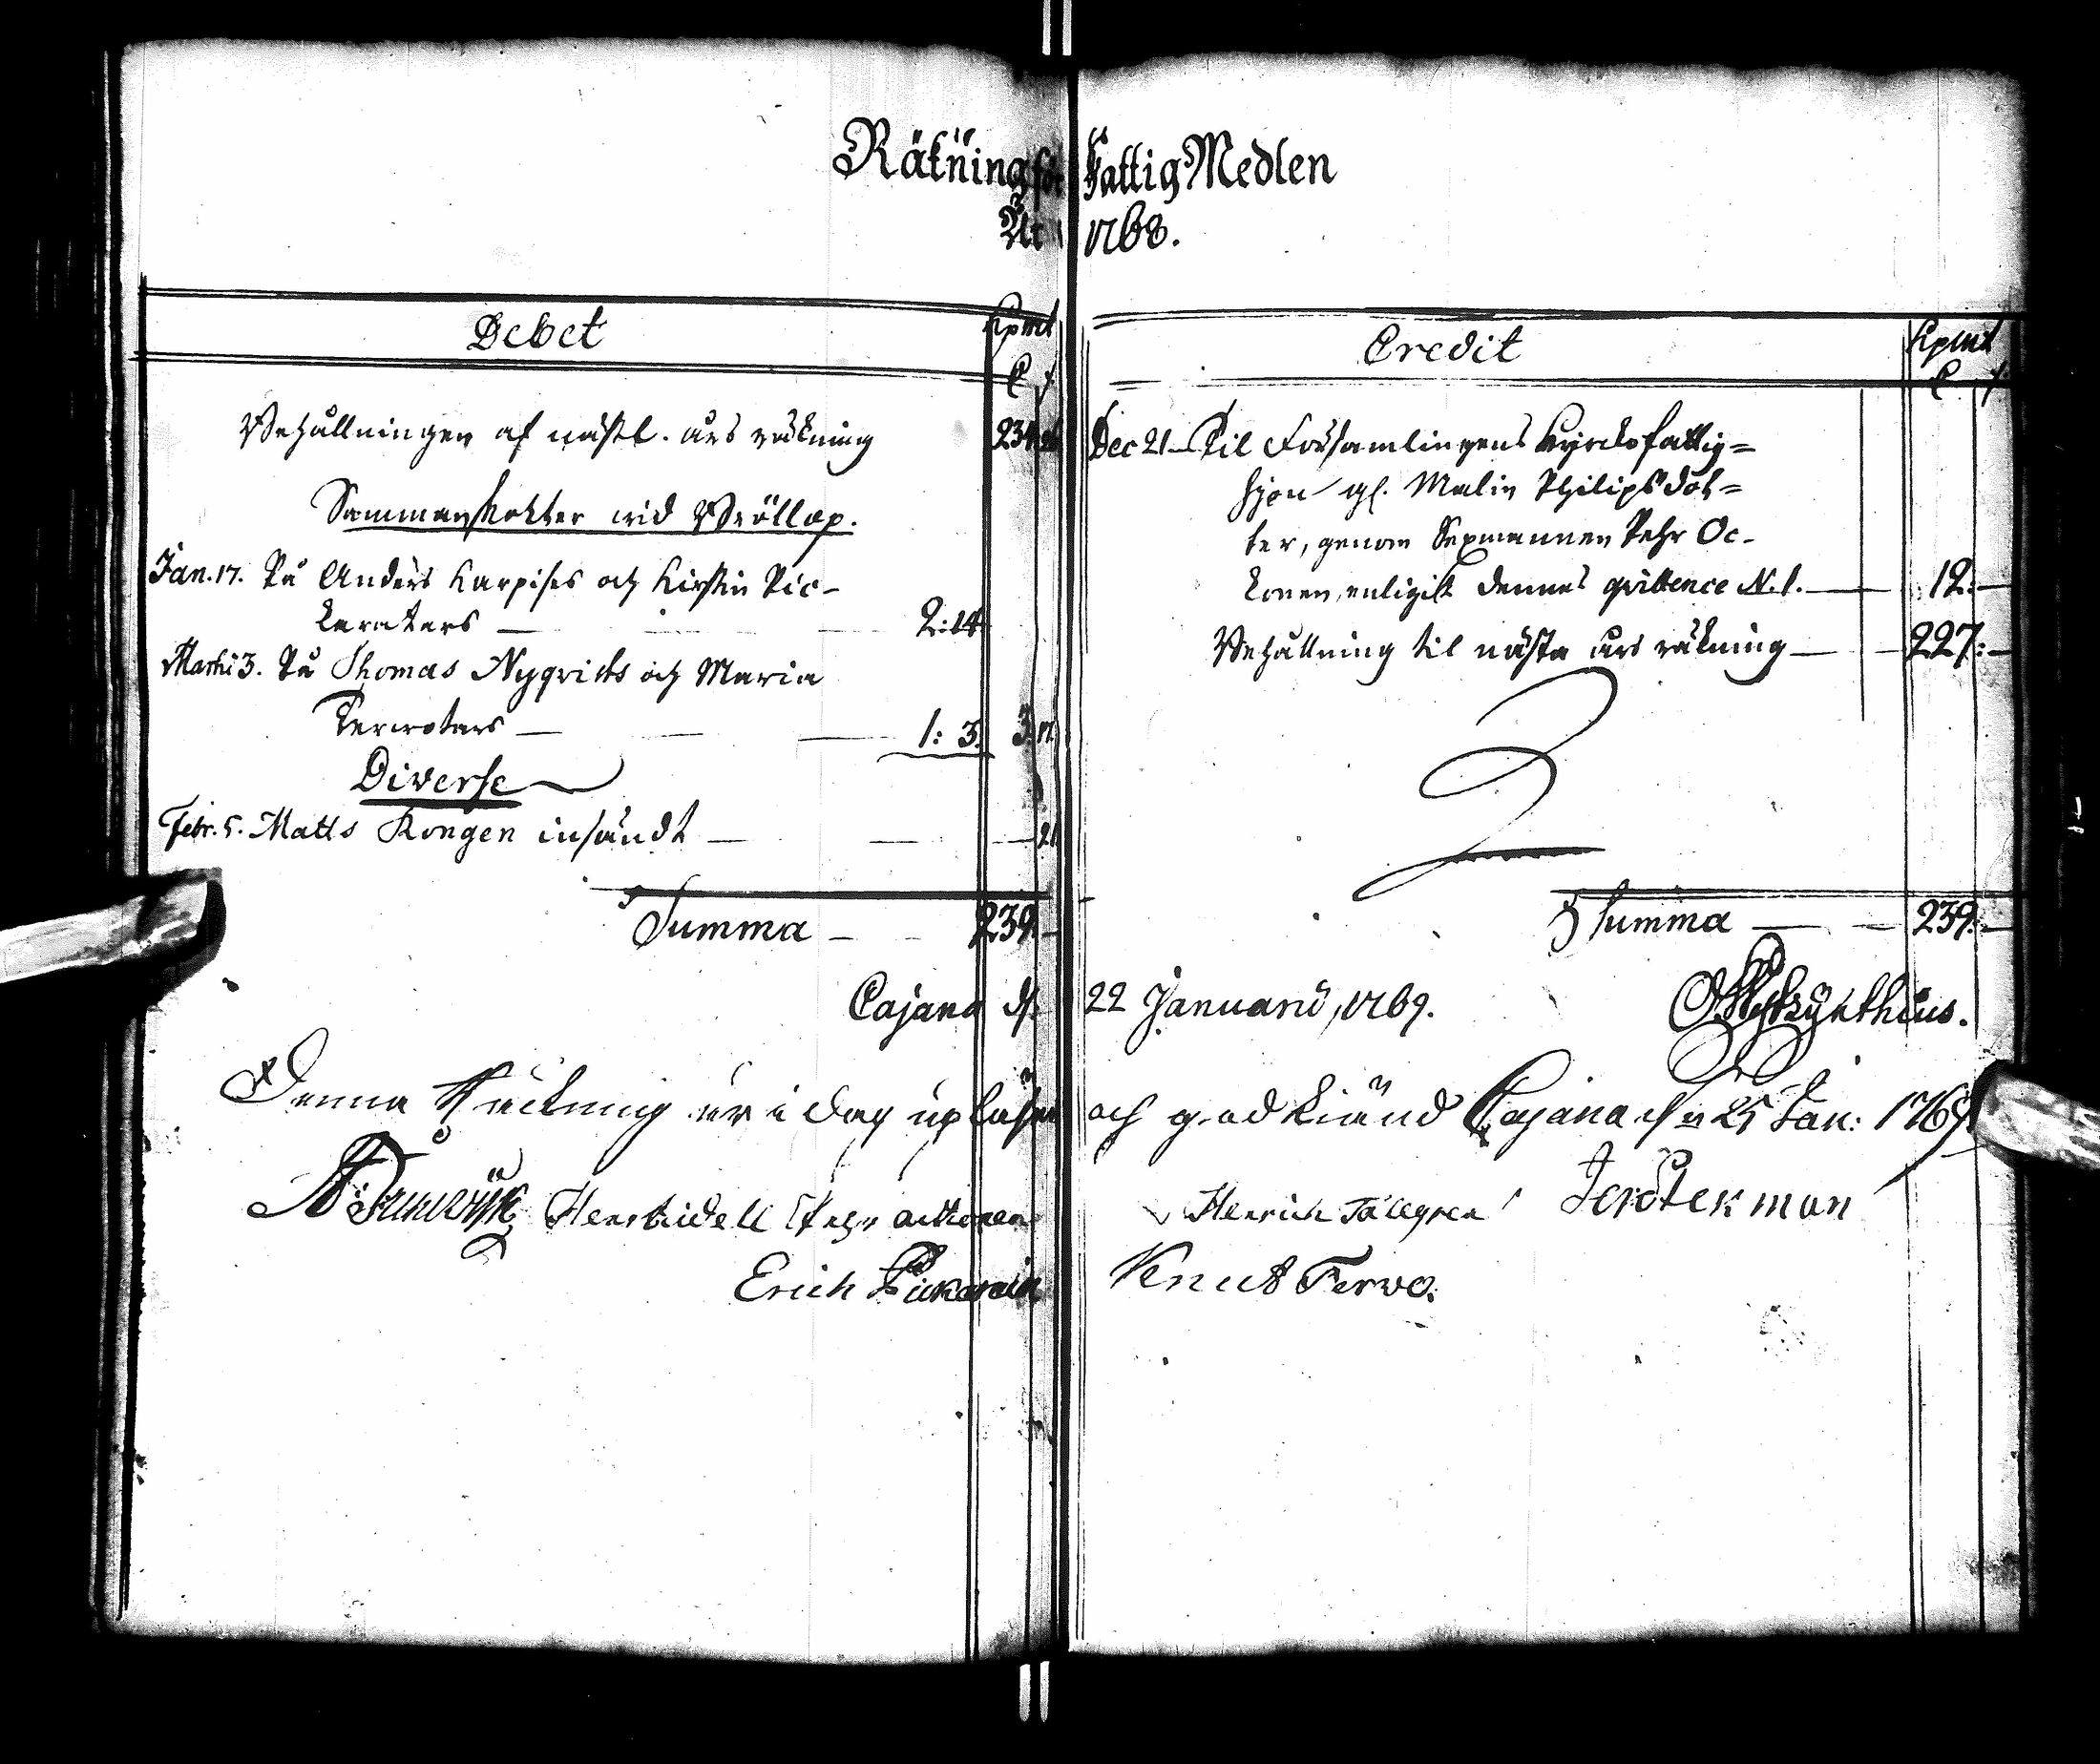 Räkning för Fattig Medlen
År 1768.
Debet
Kpmt
Behållningen af nästl. års räkning 234 26
Sammanskotter wid Bröllop.
Jan. 17. På Anders Karpises och Kirstin Pic-
keraters — 2: 14
Martii 3. På Thomas Nyqvists och Maria
Terwotars — 1: 3. 3. 17.
Diverse
Febr. 5. Matts Kongen insändt — 21
Summa — 239. —
Credit
Kpmt
Dec 21 Til Församlingens Kyrckofattig=
hjon gl. Malin Philipsdot=
ter, genom Sexmannen Pehr Oc-
konen, enligit dennes qvittence N. 1. — 12. —
Behållning til nästa års räkning — 227: —
Summa — 239: —
Cajana d. 22 Januarii, 1769.
Denna Räckning är i dag upläsen och godkiänd Cajana d 25 Jan: 1769.
Pehr Henrich Tällgren
Erich Knut Terwo.